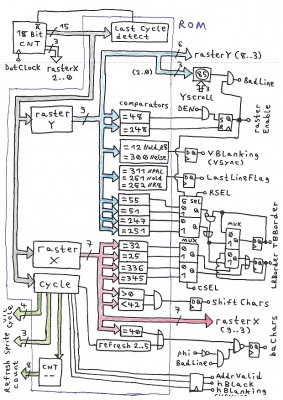 ROM
18 Bit
CNT
15
3
DotClock
rasterX
2..0
Last Cycle
detect
6
rasterY (8..3)
(2..0)
3
Yscroll
BadLine
raster
Y
9
comparators
=48
=248
DEN
raster
Enable
VBlanking
(VSync)
LastLineFlag
RSEL
=55
=51
=247
=251
SEL
MUX
TBBorder
LRBorder
raster
X
7
=32
=25
=336
=345
MUX
CSEL
cycle
>0
<42
ShiftChars
7
rasterX
(9..3)
=40
refresh 2..5
baChars
phi
BadLine
4
VIC
Cycle
3
Sprite
8
Refresh
count
CNT
--
AddrValid
hBlack
hBlanking